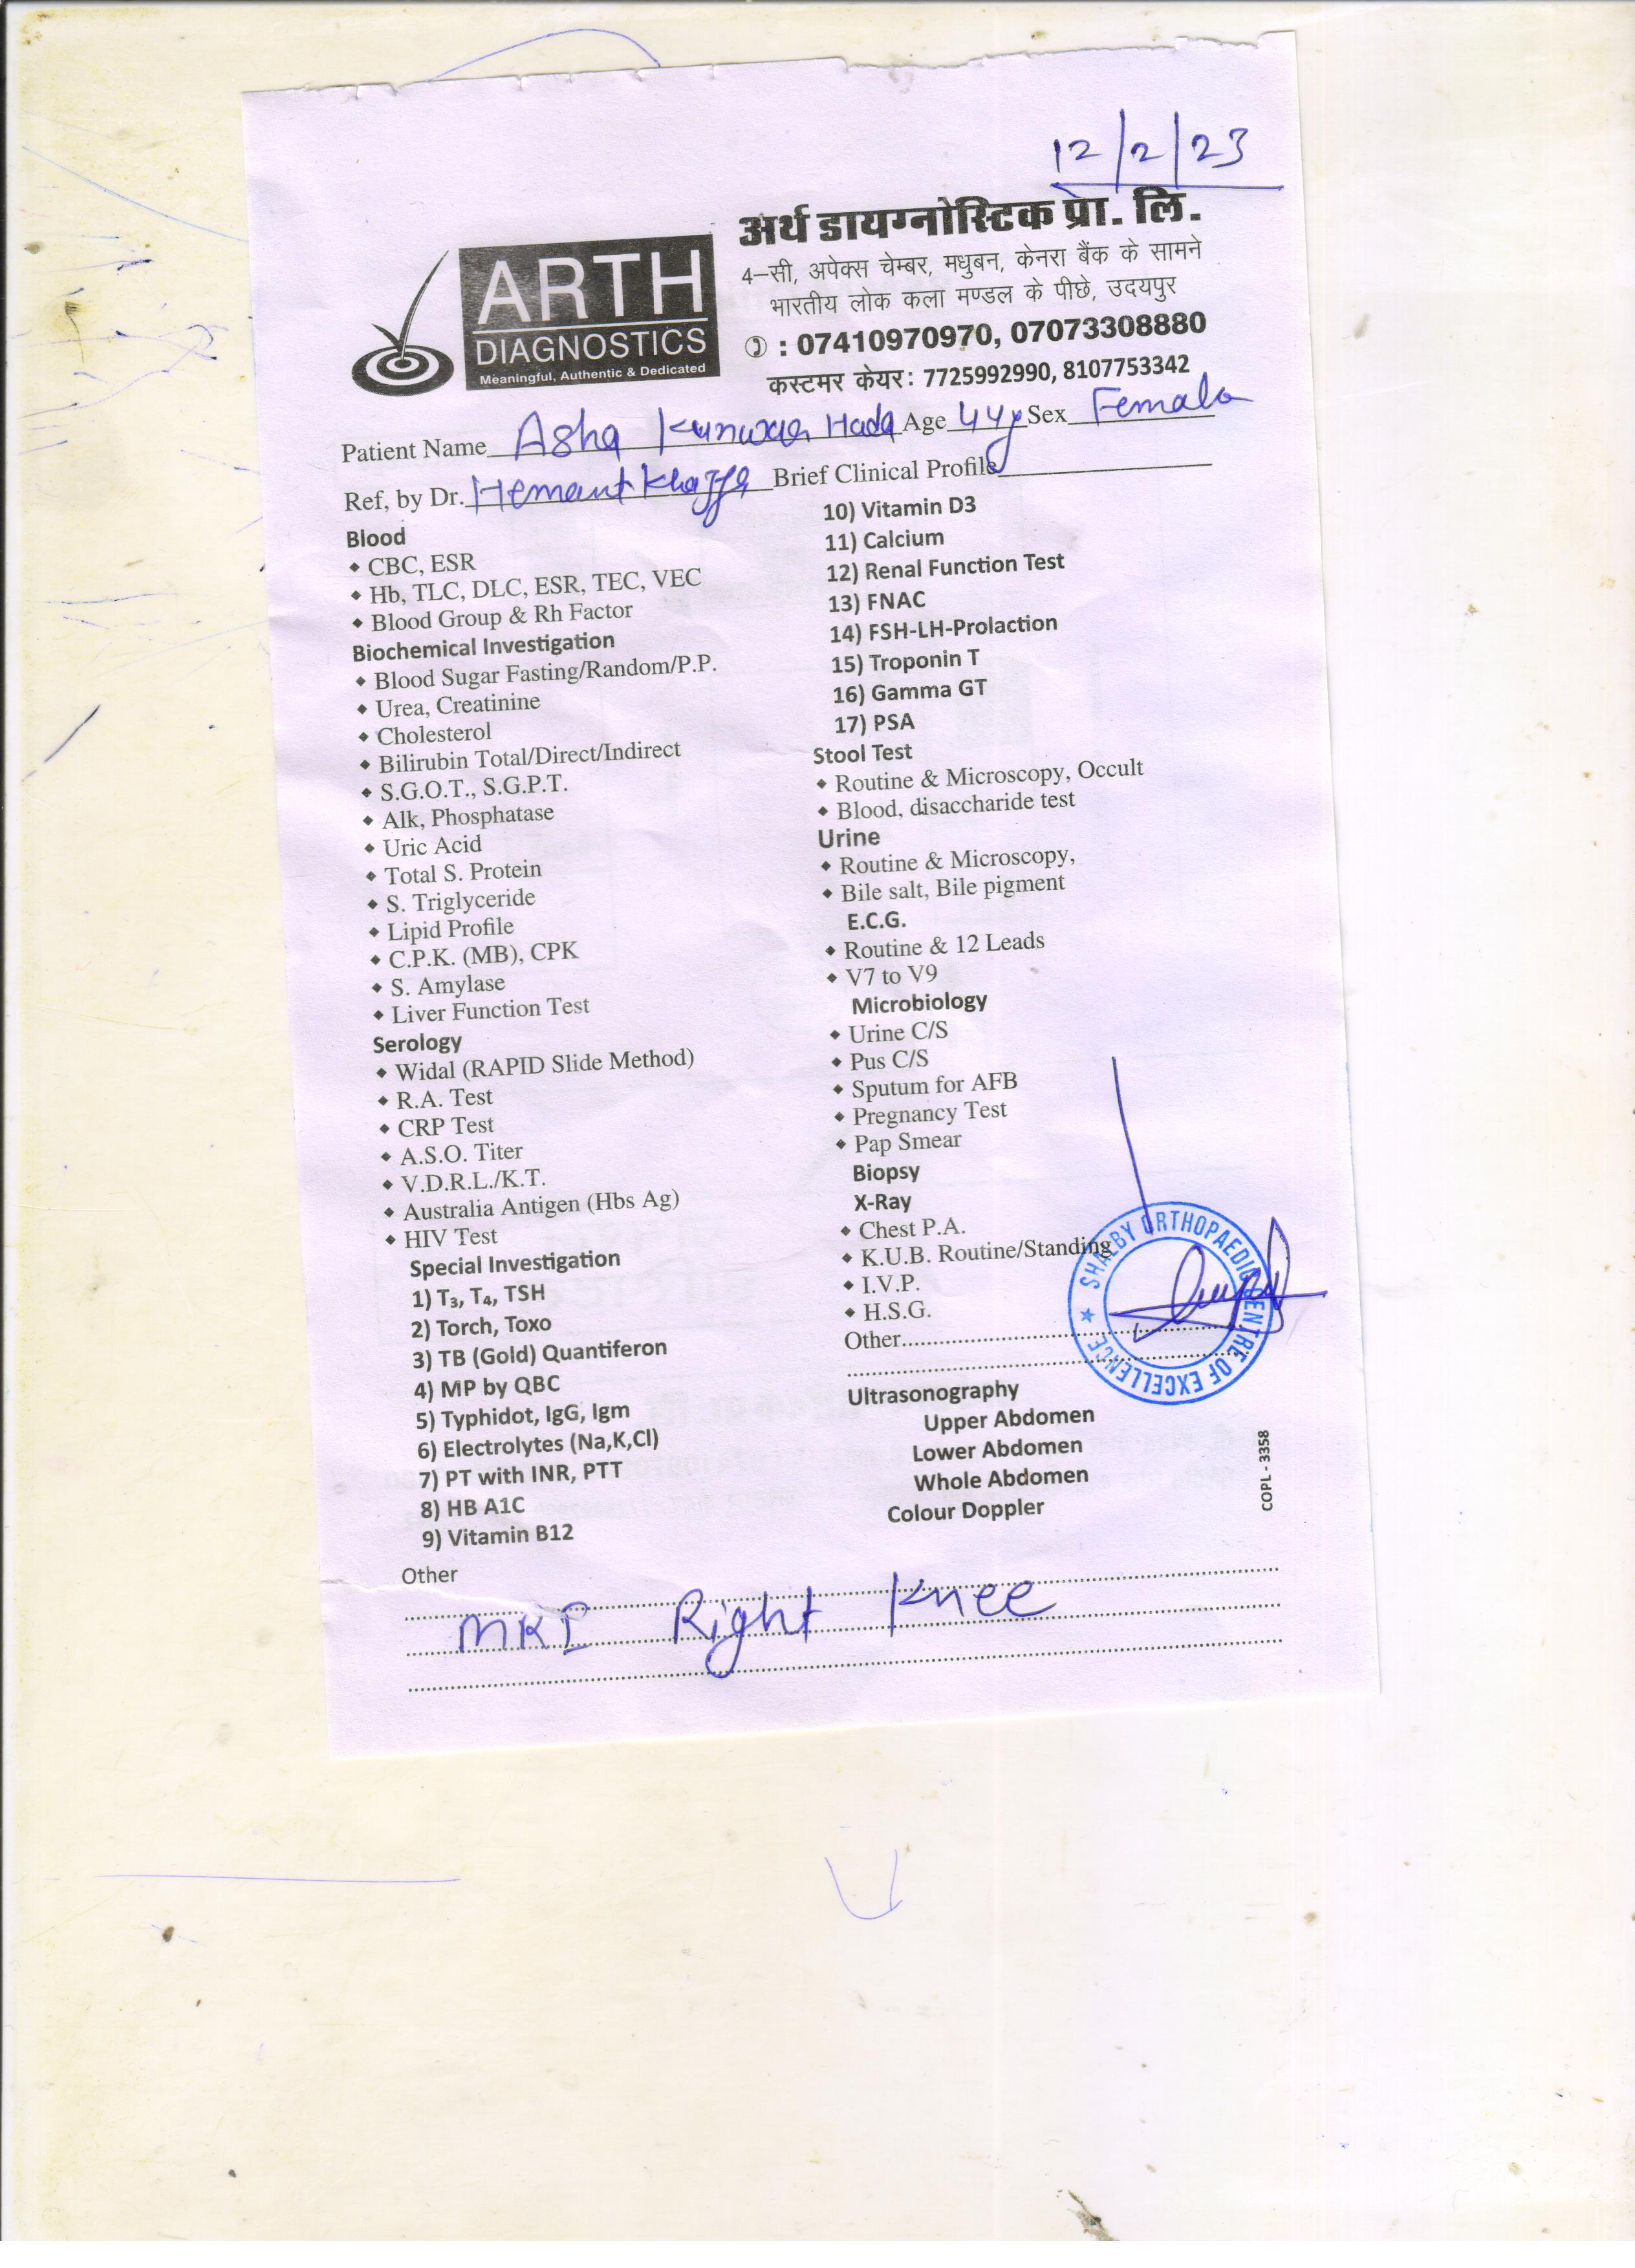 12/2/23
अर्थ डायग्नोस्टिक प्रा. लि.
4–सी, अपेक्स चेम्बर, मधुबन, केनरा बैंक के सामने
भारतीय लोक कला मण्डल के पीछे, उदयपुर
: 07410970970, 07073308880
कस्टमर केयर: 7725992990, 8107753342
ARTH
DIAGNOSTICS
Meaningful, Authentic & Dedicated
Patient Name Asha Kunwar Hada Age 44y Sex Female
Ref, by Dr. Hemant Brief Clinical Profile
Blood
CBC, ESR
Hb, TLC, DLC, ESR, TEC, VEC
Blood Group & Rh Factor
Biochemical Investigation
Blood Sugar Fasting/Random/P.P.
Urea, Creatinine
Cholesterol
Bilirubin Total/Direct/Indirect
S.G.O.T., S.G.P.T.
Alk, Phosphatase
Uric Acid
Total S. Protein
S. Triglyceride
Lipid Profile
C.P.K. (MB), CPK
S. Amylase
Liver Function Test
Serology
Widal (RAPID Slide Method)
R.A. Test
CRP Test
A.S.O. Titer
V.D.R.L./K.T.
Australia Antigen (Hbs Ag)
HIV Test
Special Investigation
1) T₃, T₄, TSH
2) Torch, Toxo
3) TB (Gold) Quantiferon
4) MP by QBC
5) Typhidot, IgG, Igm
6) Electrolytes (Na,K,Cl)
7) PT with INR, PTT
8) HB A1C
9) Vitamin B12
10) Vitamin D3
11) Calcium
12) Renal Function Test
13) FNAC
14) FSH-LH-Prolaction
15) Troponin T
16) Gamma GT
17) PSA
Stool Test
Routine & Microscopy, Occult
Blood, disaccharide test
Urine
Routine & Microscopy,
Bile salt, Bile pigment
E.C.G.
Routine & 12 Leads
V7 to V9
Microbiology
Urine C/S
Pus C/S
Sputum for AFB
Pregnancy Test
Pap Smear
Biopsy
X-Ray
Chest P.A.
K.U.B. Routine/Standing
I.V.P.
H.S.G.
Other
SHALBY ORTHOPAEDIC CENTRE OF EXCELLENCE
Ultrasonography
Upper Abdomen
Lower Abdomen
Whole Abdomen
Colour Doppler
COPL - 3358
Other
MRI Right Knee